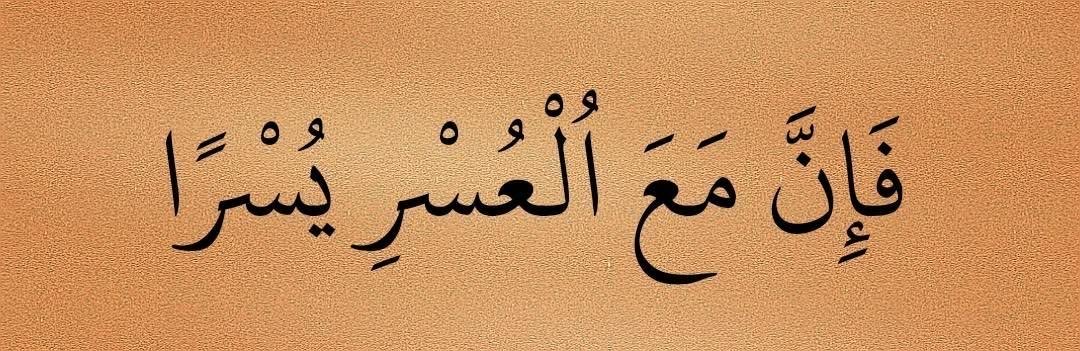 فَإِنَّ مَعَ اُلْعُسْرِ يُسْرًا